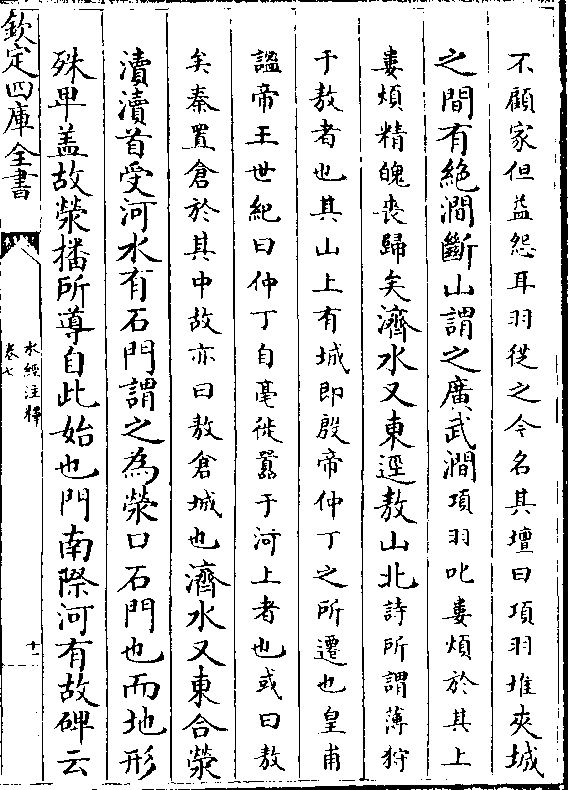 不顧家但益怨耳羽從之今名其壇曰項羽堆夾城
之間有絶澗斷山謂之廣武澗項羽叱婁煩於其上
婁煩精魄喪歸矣濟水又東逕敖山北詩所謂薄狩
于敖者也其山上有城即殷帝仲丁之所遷也皇甫
謐帝王世紀曰仲丁自亳徙囂于河上者也或曰敖
矣秦置倉於其中故亦曰敖倉城也濟水又東合滎
瀆瀆首受河水有石門謂之為滎口石門也而地形
殊卑蓋故滎播所導自此始也門南際河有故碑云
欽定四庫全書
水經注釋
卷七
十